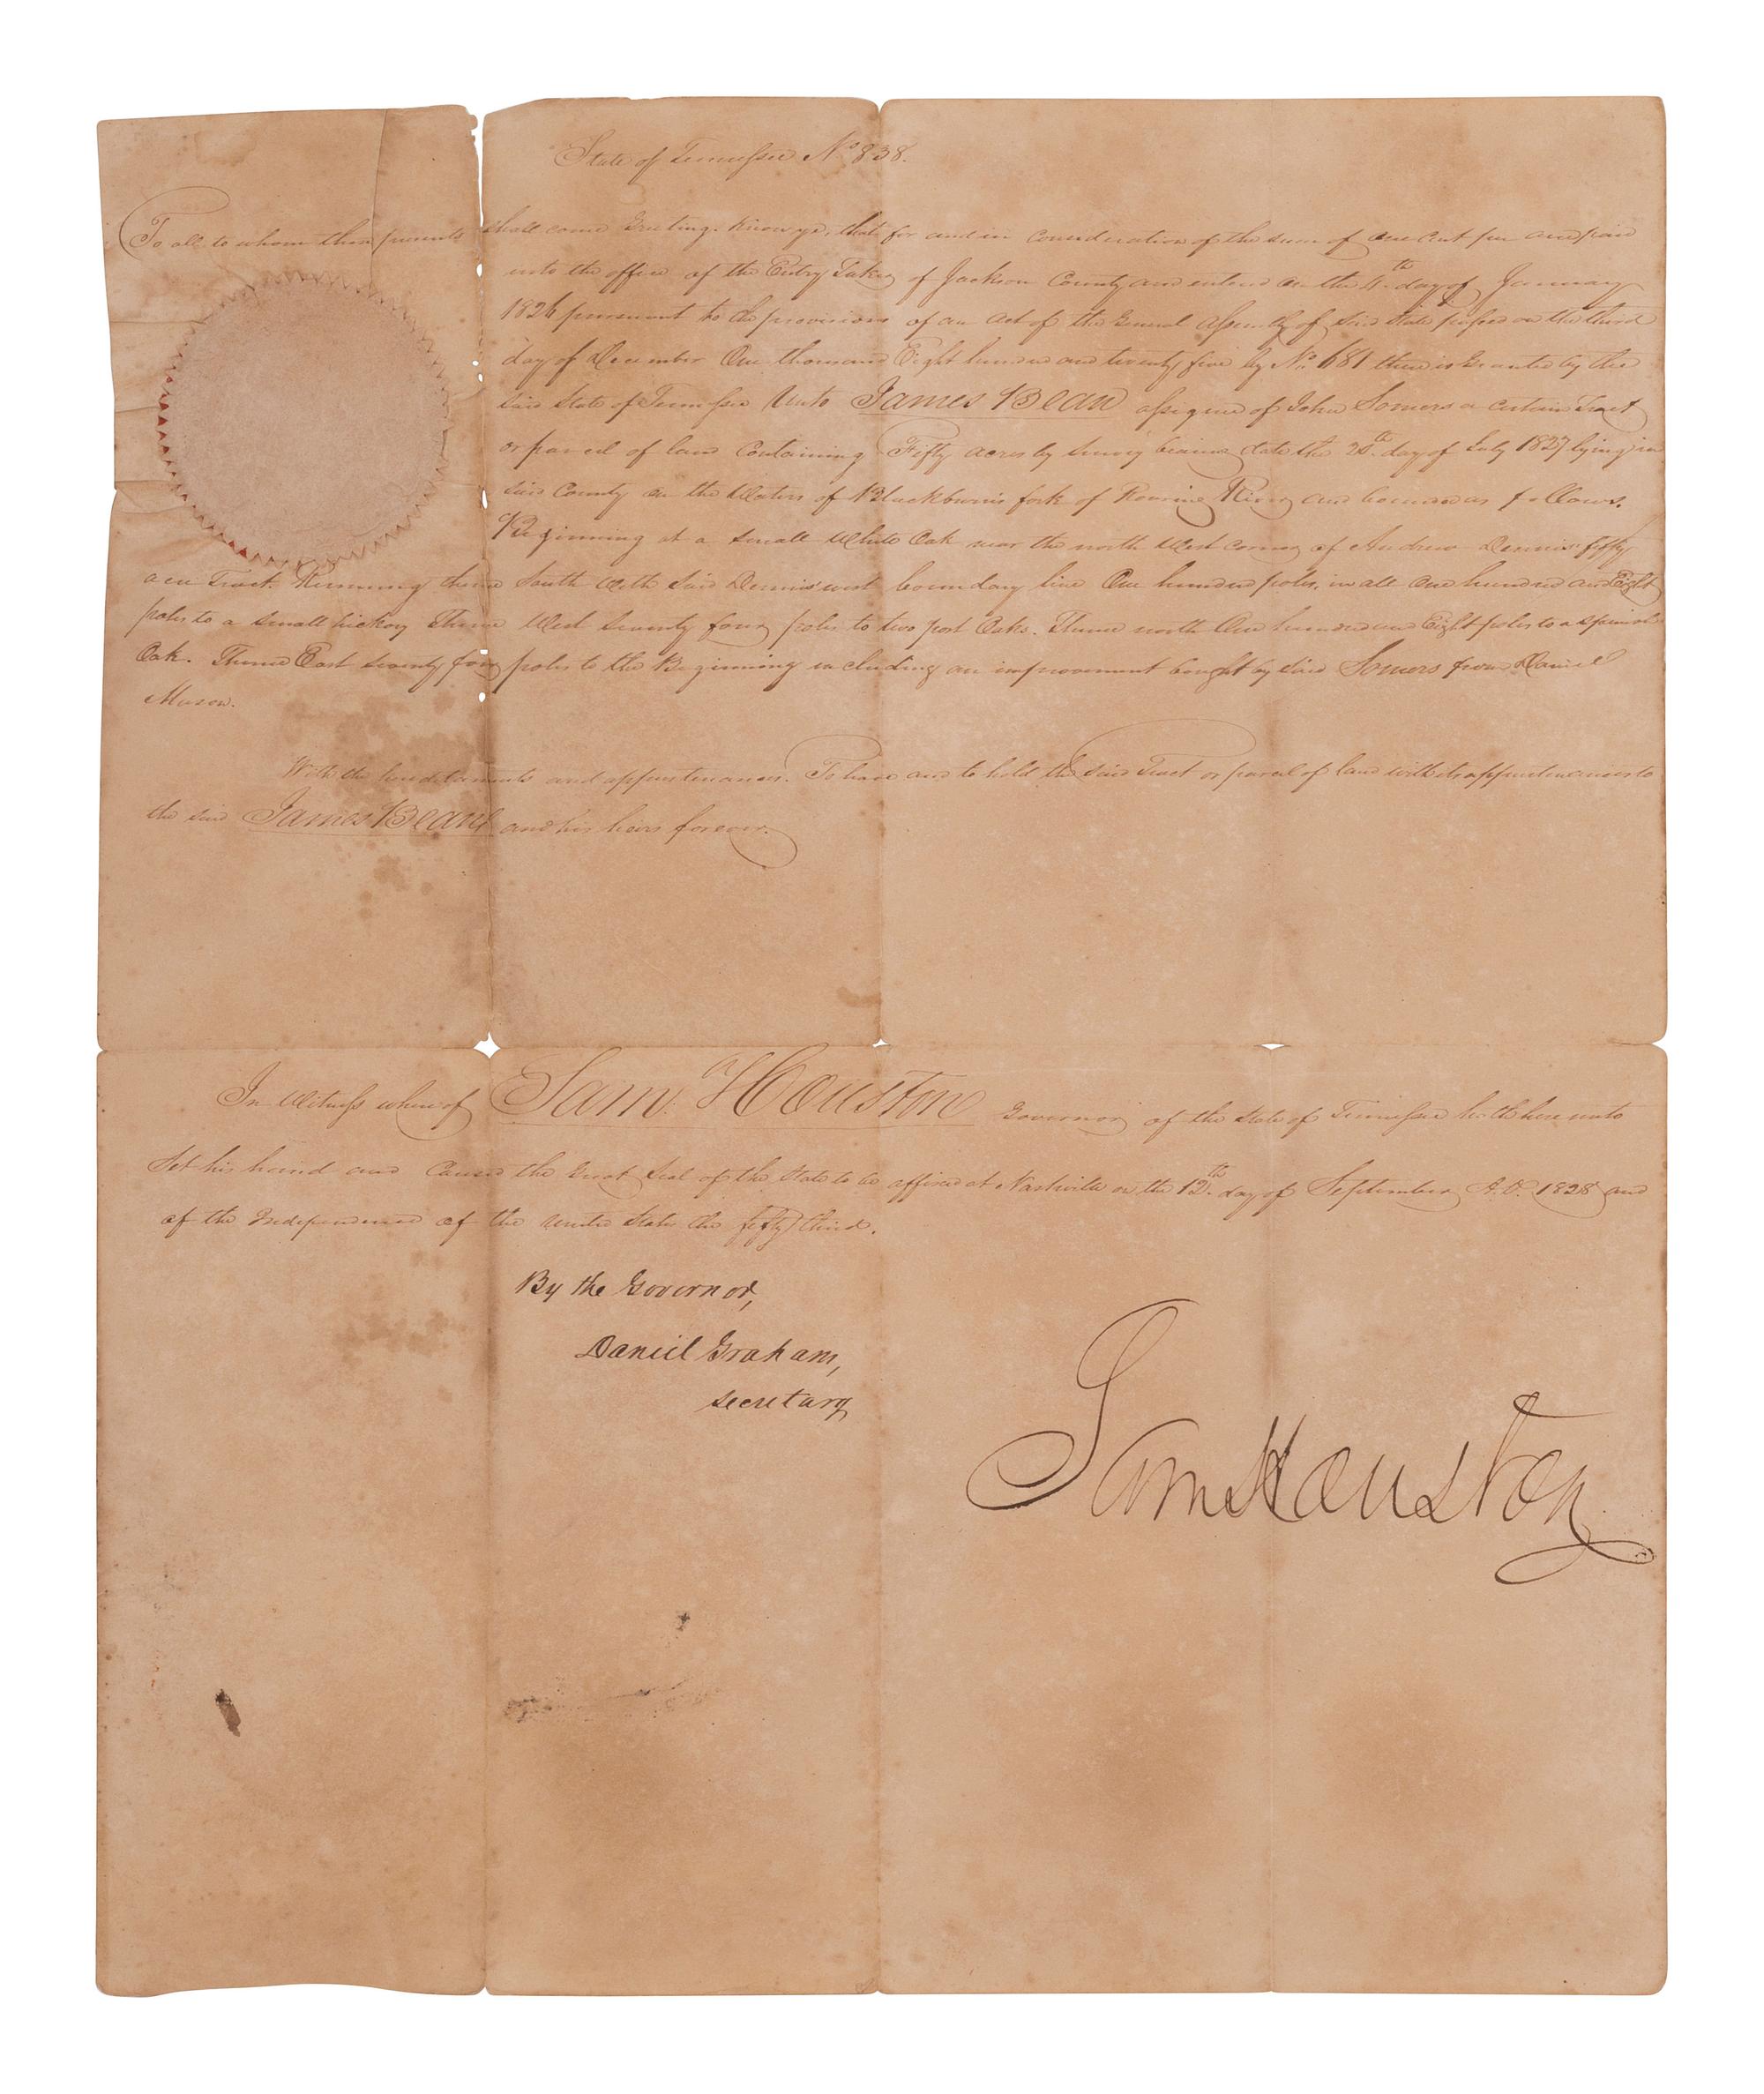 State of Tennessee No 838.
To all to whom these presents shall come Greeting. Know ye, that for and in consideration of the sum of one cent per acre paid
into the office of the Entry Taker of Jackson County and entered on the 4th day of January
1826 pursuant to the provisions of an Act of the General Assembly of said State passed on the third
day of December One thousand Eight hundred and twenty five by No 681 there is Granted by the
said State of Tennessee Unto James Bean assignee of John Somers a certain Tract
or parcel of land Containing Fifty acres by survey bearing date the 28th day of July 1827 lying in
said County on the Waters of Blackburn's fork of Roaring River and bounded as follows.
Beginning at a small White Oak near the north West corner of Andrew Dennis' fifty
acre Tract. Running thence South With said Dennis' west boundary line One hundred poles, in all One hundred and Eight
poles to a small hickory Thence West seventy four poles to two post Oaks. Thence north One hundred and Eight poles to a spanish
Oak. Thence East seventy four poles to the Beginning including an improvement bought by said Somers from Daniel
Mason.
With the hereditaments and appurtenances. To have and to hold the said Tract or parcel of land with its appurtenances to
the said James Bean and his heirs forever.
In Witness whereof Saml. Houston Governor of the State of Tennessee hath hereunto
Set his hand and Caused the Great Seal of the State to be affixed at Nashville on the 12th day of September A.D. 1828 and
of the Independence of the United States the fifty third.
By the Governor,
Daniel Graham,
secretary
Sam Houston